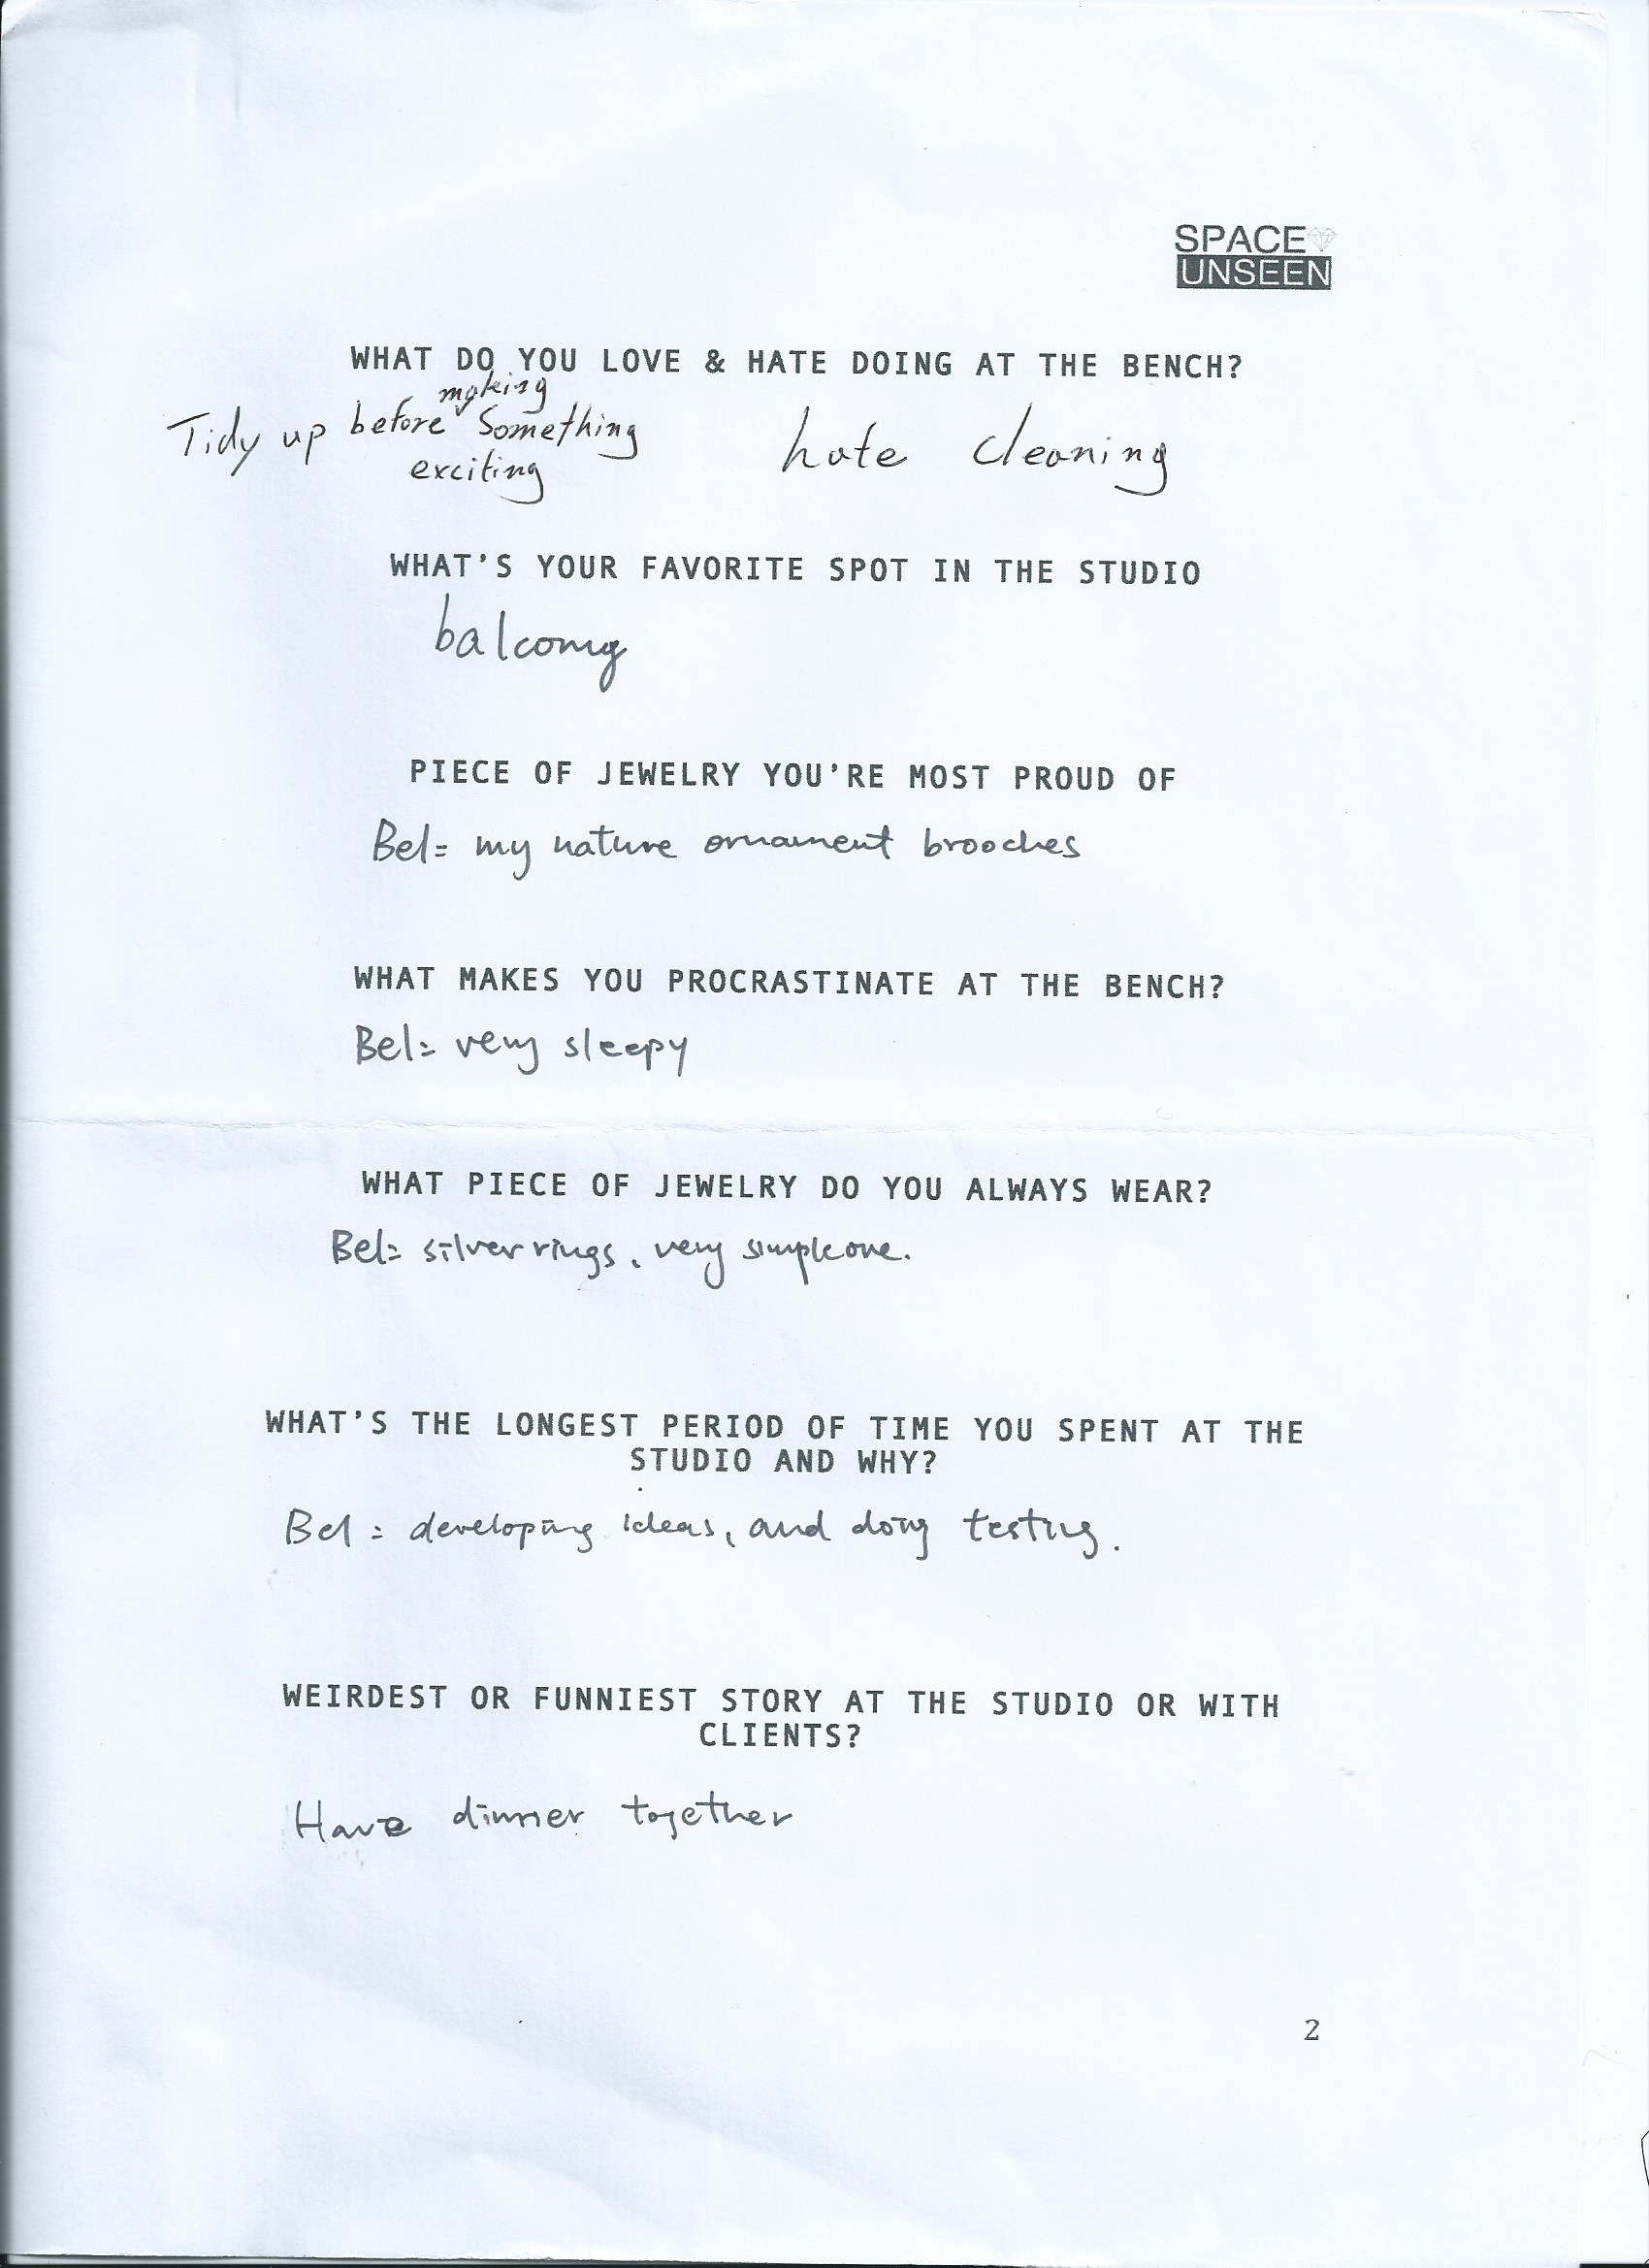 SPACE
UNSEEN
WHAT DO YOU LOVE & HATE DOING AT THE BENCH?
making
Tidy up before something
exciting
hate cleaning
WHAT'S YOUR FAVORITE SPOT IN THE STUDIO
balcony
PIECE OF JEWELRY YOU'RE MOST PROUD OF
Bel= my nature ornament brooches
WHAT MAKES YOU PROCRASTINATE AT THE BENCH?
Bel= very sleepy
WHAT PIECE OF JEWELRY DO YOU ALWAYS WEAR?
Bel= silver rings, very simple one.
WHAT'S THE LONGEST PERIOD OF TIME YOU SPENT AT THE
STUDIO AND WHY?
Bel = developing ideas, and doing testing.
WEIRDEST OR FUNNIEST STORY AT THE STUDIO OR WITH
CLIENTS?
Have dinner together
2